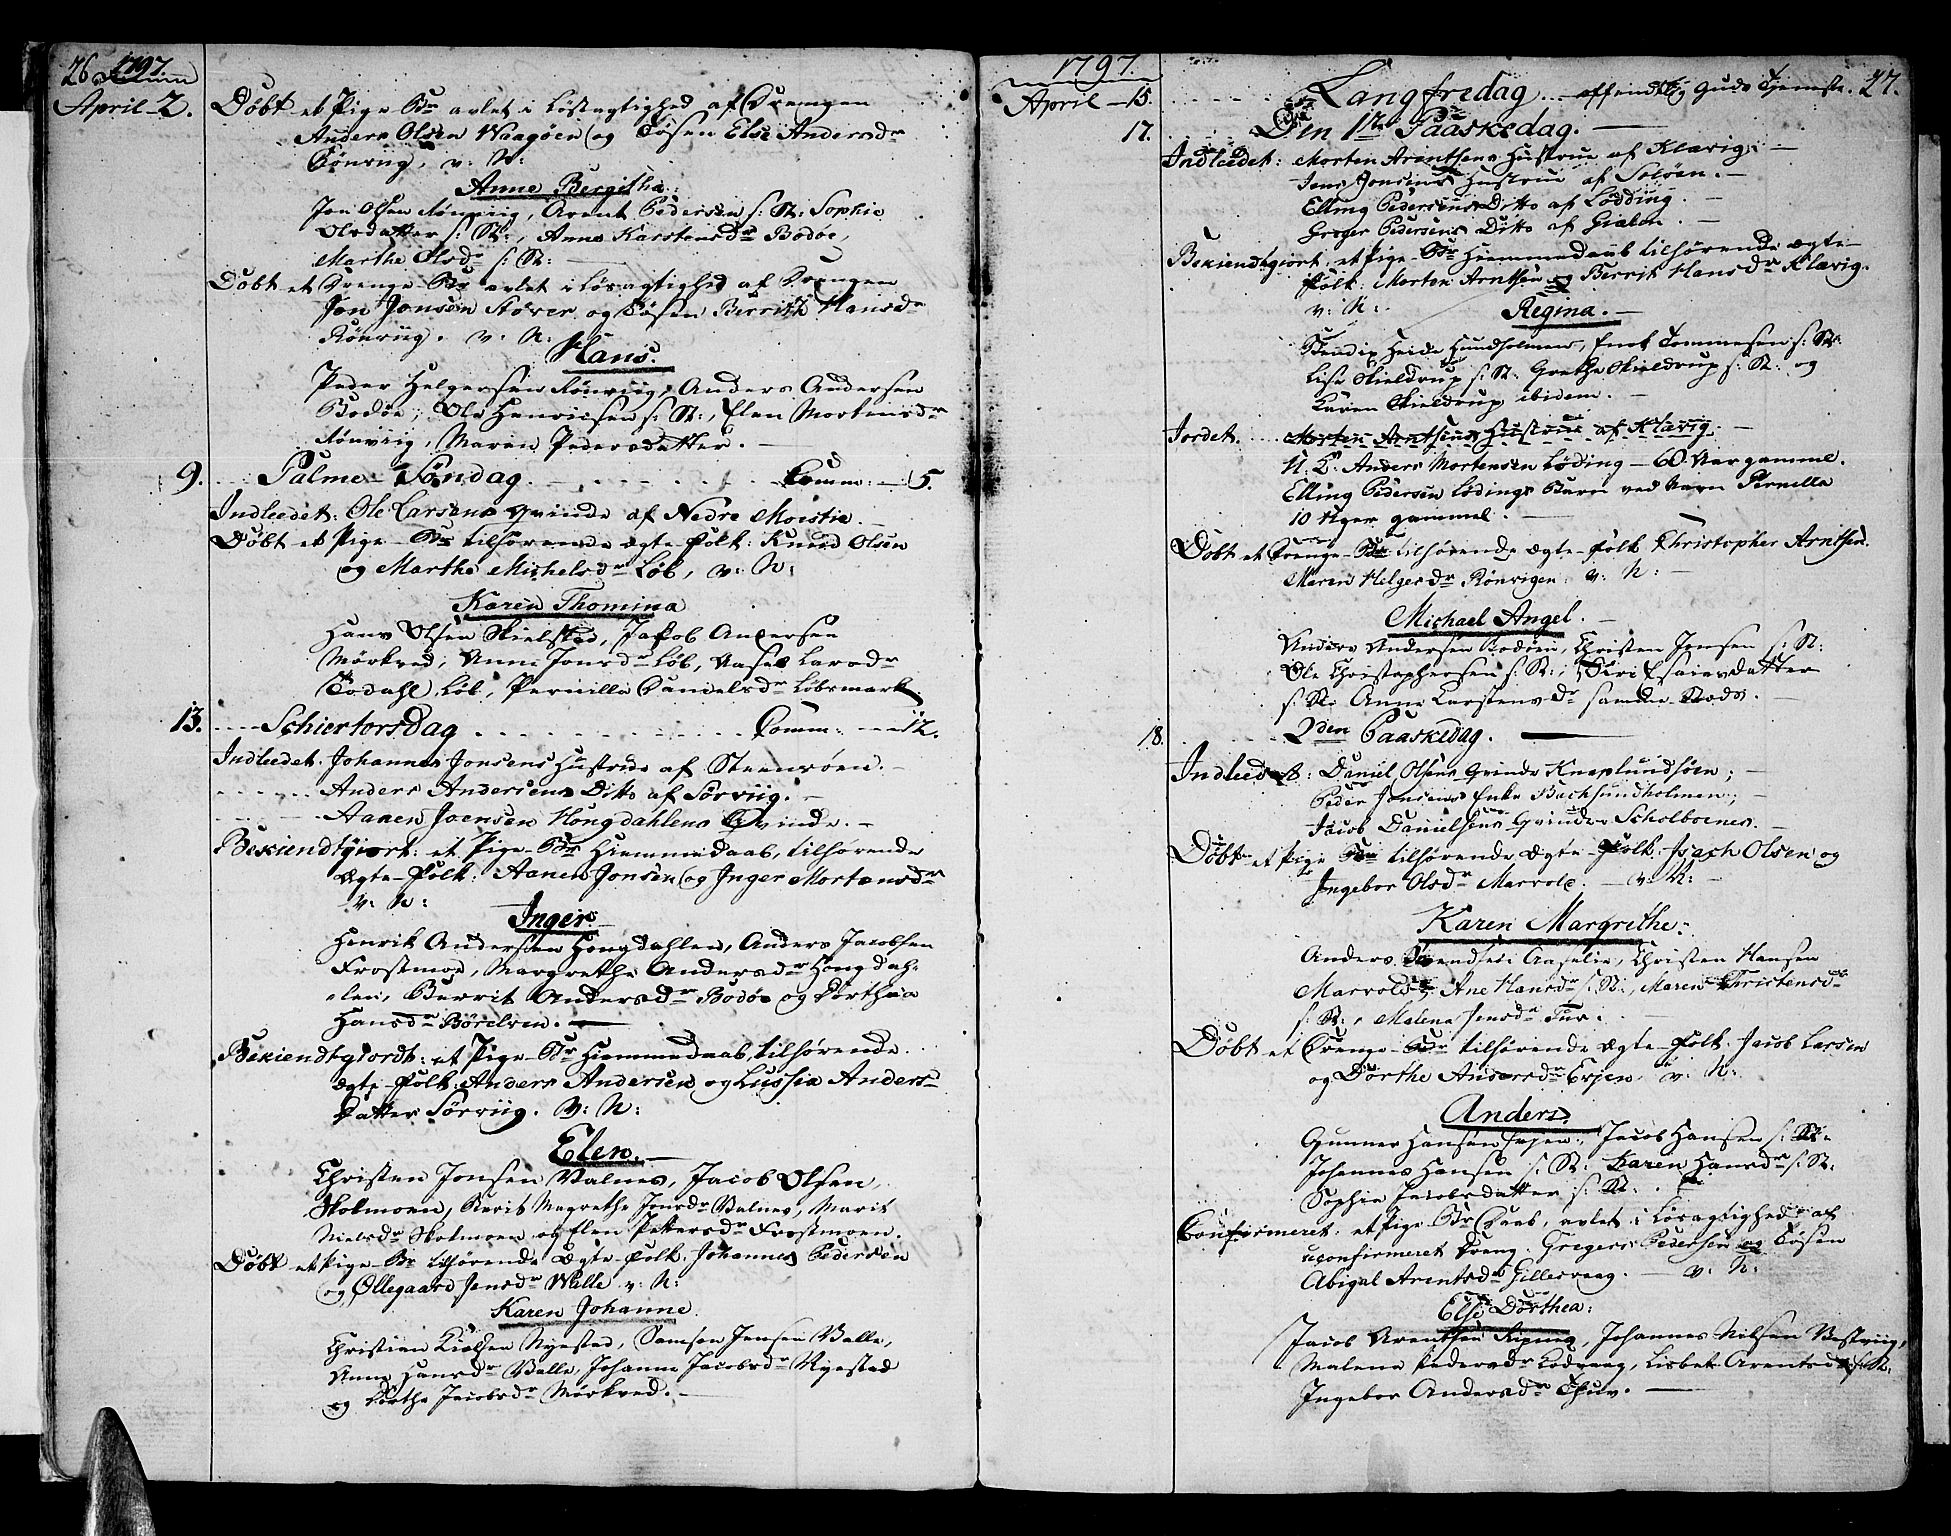 26. 1797.
April 2. Döbt et Pige Br avlet i Løsagtighed af Drengen
Anders Olsen Waagöen og Tøsen Else Andersdr
Rönviig, v: N:
Anne Bergitha:
Jon Olsen Rönviig, Arent Pedersen s: St: Sophie
Olsdatter s: St:, Anne Karstensdr Bodöe,
Marthe Olsdr s: St:
Döbt et Drenge Br avlet i Løsagtighed af Drengen
Jon Jonsen Störer og Tøsen Berrith Hansdr
Rönviig. v: N:
Hans.
Peder Helgersen Rönviig, Anders Andersen
Bodöe, Ole Henricsen s: St:, Elen Mortensdr
Rönviig, Maren Pedersdatter.
9. Palme-Søndag Comm: 5.
Indleedet: Ole Larsens Qvinde af Nedre Moistie.
Döbt et Pige Br tilhørende ægte-Folk: Knud Olsen
og Marthe Michelsdr Löb, v: N:
Karen Thomina
Hans Olsen Skielstad, Jakob Andersen
Mörkved, Anne Jonsdr Löb, Aases Larsdr
Todahl, Löb, Pernille Danielsdr Löbsmark
13. Schiertorsdag Comm: 12.
Indleedet: Johannes Jonsens Hustrue af Steensöen.
Anders Andersens Ditto af Sörviig.
Aanen Joensen Hongdahlens Qvinde.
Bekiendtgiort: et Pige-Br Hiemmedaab, tilhørende
ægte-Folk: Aanen Jonsen og Inger Mortensdr
v: N:
Inger.
Henrik Andersen Hongdahlen, Anders Jacobsen
Frostmoe, Margrethe Andersdr Hongdah-
len, Berrit Andersdr Bodöe og Dorthea
Hansdr Börelsen.
Bekiendtgiordt: et Pige-Br Hiemmedaab, tilhørende
ægte-Folk: Anders Andersen og Lussia Anders-
datter Sörviig. v: N:
Elen.
Christen Jonsen Valnes, Jacob Olsen
Skolmoen, Karit Magrethe Jonsdr Valnes, Marit
Nielsdr Skolmoen og Elen Pettersdr Frostmoen.
Döbt et Pige-Br tilhørende ægte-Folk: Johannes Pedersen
og Øllegaard Jensdr Walle v: N:
Karen Johanne.
Christian Nyested, Samsen Jensen Valle,
Anne Hansdr Valle, Johanne Jacobsdr Nyested
og Dorthe Jacobsdr Mörkved.
1797.
27.
April 15. Langfredag offendtlig Guds Tjeneste.
17. Den 1te Paaskedag.
Indleedet: Morten Arentsens Hustrue af Klævig;
Jens Jonsens Hustrue af Solöen.
Elling Pedersens Ditto af Lødding.
Greger Pedersens Ditto af Giælen.
Bekiendtgiort: et Pige-Br Hiemmedaab tilhørende ægte-
Folk: Morten Arntsen og Berrit Hansdr Klævig.
v: N:
Regina.
Bendix Heide Hundholmen, Enok Tommesen s: St:
Lise Skieldrup s: St: Grethe Skieldrup s: St: og
Karen Skieldrup ibidem.
Jordet. Morten Arntsens Hustrue af Klævig.
N. B. Anders Mortensen Løding 60 Aar gamme.
Elling Pedersen Lødings Barn ved Navn Pernilla
10 Uger gammel.
Döbt et Drenge-Br tilhørende ægte-Folk Christopher Arntsen.
Maren Helgesdr Rönvigen. v: N:
Michael Angel.
Anders Andersen Bodöen, Christen Jensen s: St:
Ole Christophersen s: St:, Siri Esaiasdatter
s: St: Anne Carstensdr samme Steds.
18. 2den Paaskedag.
Indleedet: Daniel Olsens Qvinde Knaplundsöen;
Peder Jonsens Enke Bachsundholmen;
Jacob Danielsens Qvinde Scholboenes.
Döbt et Pige Br tilhørende ægte-Folk: Isach Olsen og
Ingebor Olsdr Marvole. v: N:
Karen Margrethe:
Anders Svendsen Aaselie, Christen Hansen
Marvold, Ane Hansdr s: St:, Maren Christensdr
s: St:, Malena Jensdr Tuv.
Döbt et Drenge-Br tilhørende ægte-Folk: Jacob Larsen
og Dorthe Andersdr Erjen, v: N:
Anders.
Gunner Hansen Erjen, Jacob Hansen s: St:
Johannes Hansen s: St: Karen Hansdr s: St:
Sophia Jacobsdatter s: St:
Confirmeret: et Pige-Br Daab, avlet i Løsagtighed af
uconfirmeret Dreng: Gregers Pedersen og Tøsen
Abigal Arentsdr Gillesvaag. v: N:
Else Dorthea:
Jacob Arentsen Ripnes, Johannes Nilsen Vestviig,
Malena Pedersdr Lodvaag, Lisbet Arentsdr s: St:
Ingebor Andersdr Thuv.